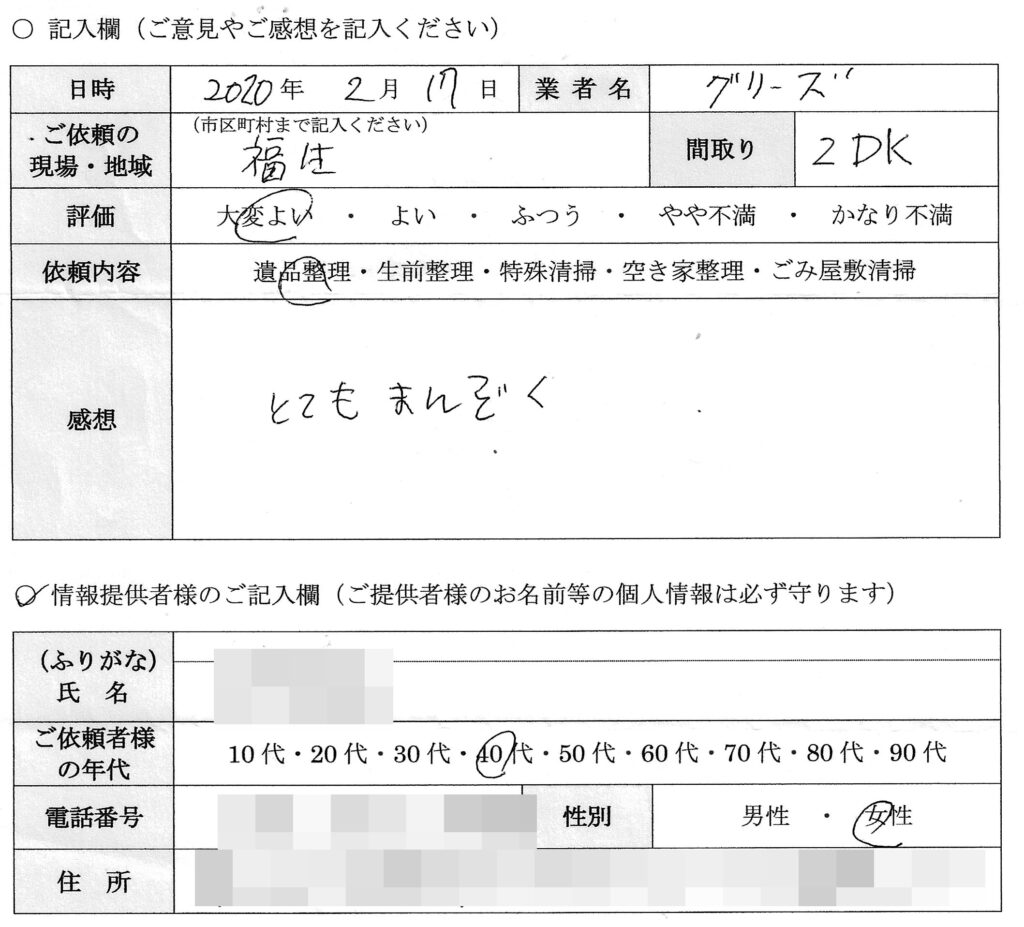 ○ 記入欄（ご意見やご感想を記入ください）
日時 2020年 2月 17日 業者名 グリーズ
ご依頼の現場・地域 （市区町村まで記入ください） 福生 間取り 2DK
評価 大変よい ・ よい ・ ふつう ・ やや不満 ・ かなり不満
依頼内容 遺品整理・生前整理・特殊清掃・空き家整理・ごみ屋敷清掃
感想 とても まんぞく
○ 情報提供者様のご記入欄（ご提供者様のお名前等の個人情報は必ず守ります）
（ふりがな）
氏 名
ご依頼者様の年代 10代・20代・30代・40代・50代・60代・70代・80代・90代
電話番号 性別 男性 ・ 女性
住 所